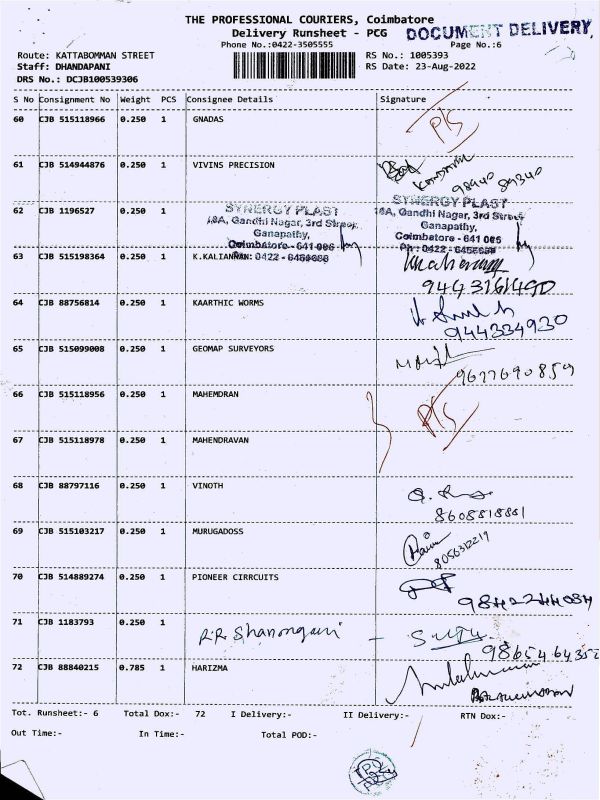 THE PROFESSIONAL COURIERS, Coimbatore
Delivery Runsheet - PCG
DOCUMENT DELIVERY,
Phone No.:0422-3505555
Page No.:6
Route: KATTABOMMAN STREET
RS No.: 1005393
Staff: DHANDAPANI
RS Date: 23-Aug-2022
DRS No.: DCJB100539306
S No Consignment No Weight PCS Consignee Details Signature
60 CJB 515118966 0.250 1 GNADAS
P/S
61 CJB 514944876 0.250 1 VIVINS PRECISION
98940 89340
62 CJB 1196527 0.250 1
SYNERGY PLAST
18A, Gandhi Nagar, 3rd Street,
Ganapathy,
Coimbatore - 641 006
Ph: 0422 - 6456688
SYNERGY PLAST
18A, Gandhi Nagar, 3rd Street,
Ganapathy,
Coimbatore - 641 006
Ph: 0422 - 6456688
63 CJB 515198364 0.250 1 K.KALIANNAN:
9443161490
64 CJB 88756814 0.250 1 KAARTHIC WORMS
944334930
65 CJB 515099008 0.250 1 GEOMAP SURVEYORS
9677690859
66 CJB 515118956 0.250 1 MAHEMDRAN
P/S
67 CJB 515118978 0.250 1 MAHENDRAVAN
68 CJB 88797116 0.250 1 VINOTH
8608818881
69 CJB 515103217 0.250 1 MURUGADOSS
8056312219
70 CJB 514889274 0.250 1 PIONEER CIRRCUITS
9842244084
71 CJB 1183793 0.250 1 R.R. Shanmugani -
9865464352
72 CJB 88840215 0.785 1 HARIZMA
Tot. Runsheet:- 6 Total Dox:- 72 I Delivery:- II Delivery:- RTN Dox:-
Out Time:- In Time:- Total POD:-